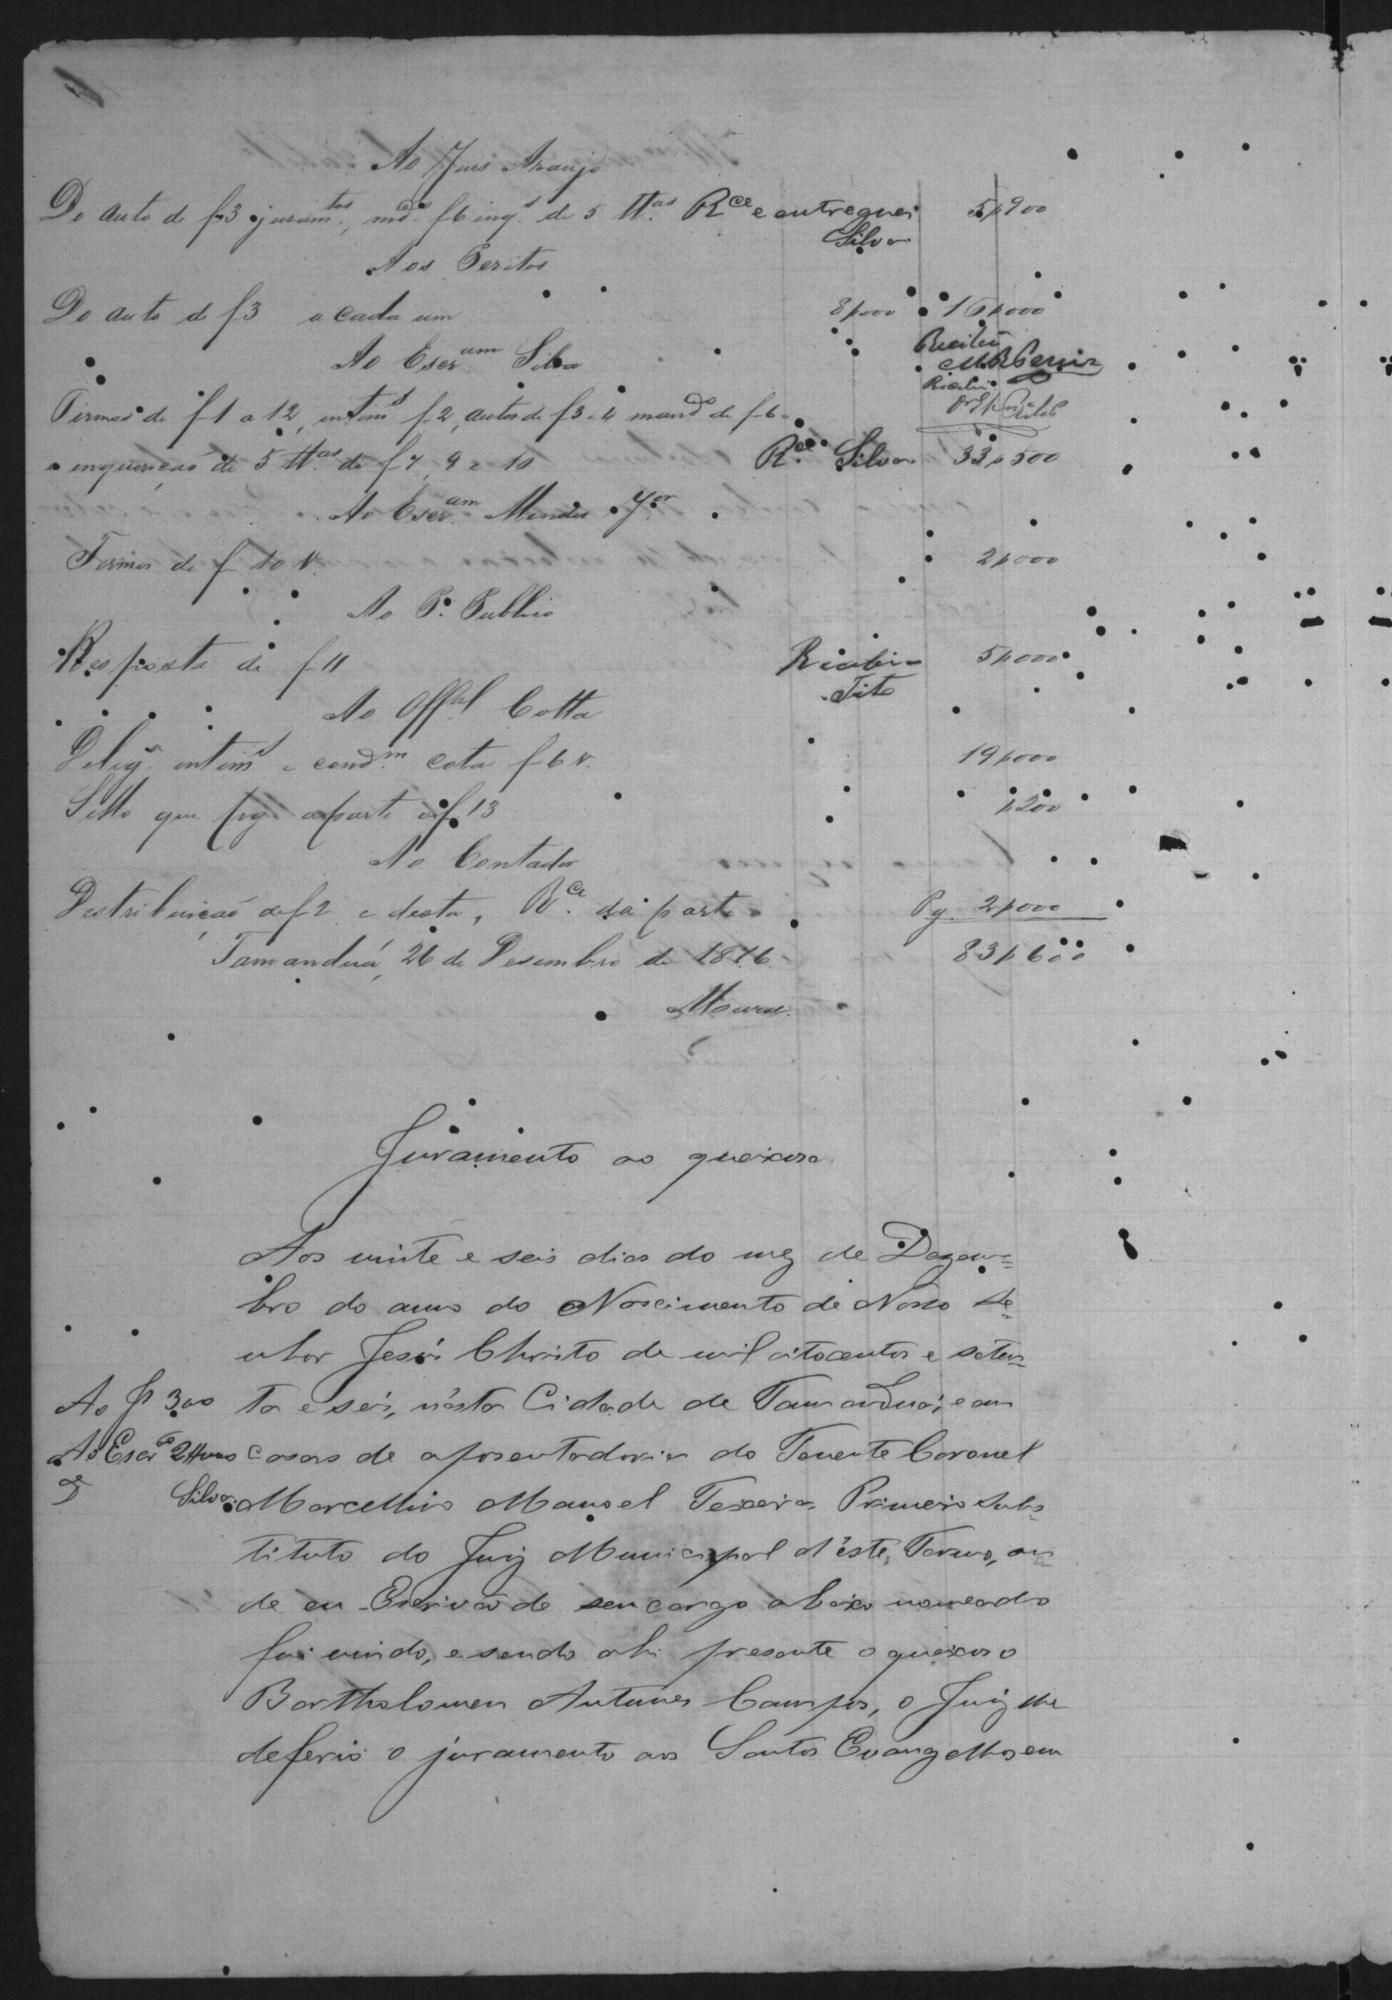 Ao Juis Araujo
Do auto de f3 juramtos, mdo f6 inqs de 5 ttas Rce e entreguei 5$900
Silva
Aos Peritos
Do auto de f3 a cada um 8$000 16$000
Recebi
Ao Escram Silva
Recebi
Termos de f1 a 12, intims f2, autos de f3 e 4 mando de f6
e inquirição de 5 ttas de f7, 9 e 10 Rce Silva 33$500
Ao Escram Mendes Jor
Termos de f 10 v. 2$000
Ao P. Publico
Resposta de f 11 Recebi 5$000
Tito
Ao Offal Cotta
Delig.a intims e condm cota f6v. 19$000
Sello que pg a parte a f 13 $200
Ao Contador
Destribuiçaõ a f2 e desta, Rce da parte Pg. 2$000
Tamanduá, 26 de Desembro de 1876. 83$600
Moura
Juramento ao queixoso.
Aos vinte e seis dias do mez de Dezem=
bro do anno do Nascimento de Nosso Se=
nhor Jesús Christo de mil oitocentos e seten=
Ao Js 300 ta e seis, nésta Cidade de Tamanduá, e em
Ao Escro casas de aposentadoria do Tenente Coronel
Silva Marcellino Manoel Texeira Primeiro Subs=
tituto do Juiz Municipal d'éste Termo, on=
de eu Escrivaõ de seu cargo abaixo nomeado
fui vindo, e sendo ahi presente o queixoso
Bartholomeu Antunes Campos, o Juiz lhe
deferio o juramento aos Santos Evangelhos em